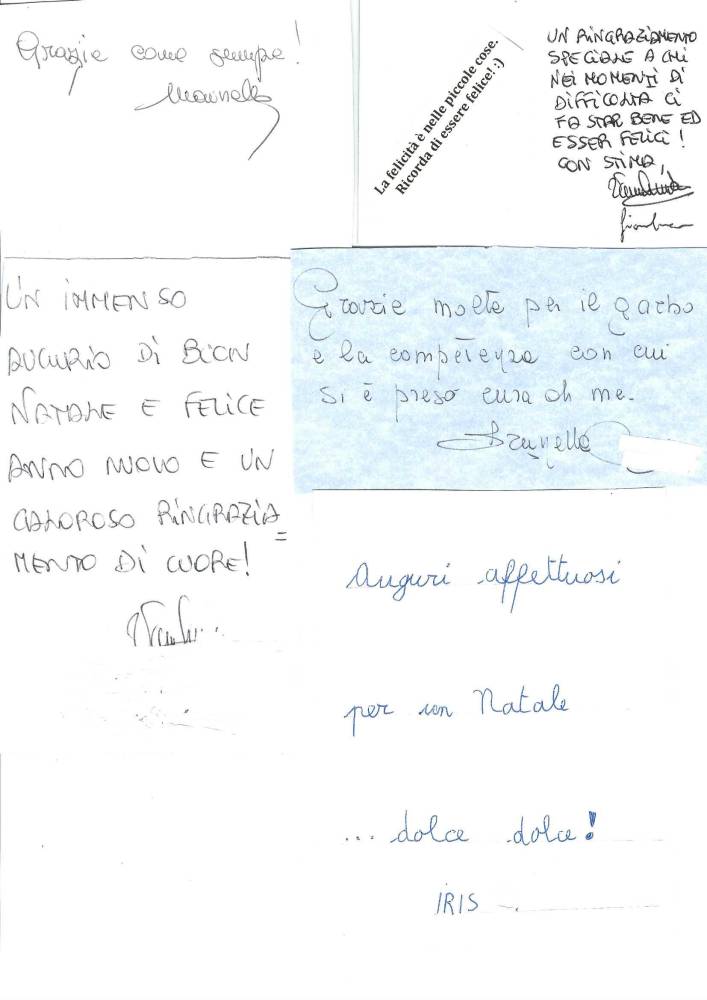 Grazie come sempre!
Marinella
La felicità è nelle piccole cose.
Ricorda di essere felice! :)
UN RINGRAZIAMENTO
SPECIALE A CHI
NEI MOMENTI DI
DIFFICOLTÀ CI
FA STAR BENE ED
ESSER FELICI!
CON STIMA,
Gianluca
UN IMMENSO
AUGURIO DI BUON
NATALE E FELICE
ANNO NUOVO E UN
CALOROSO RINGRAZIA=
MENTO DI CUORE!
Grazie molte per il garbo
e la competenza con cui
si è preso cura di me.
Brunella
Auguri affettuosi
per un Natale
... dolce dolce!
IRIS